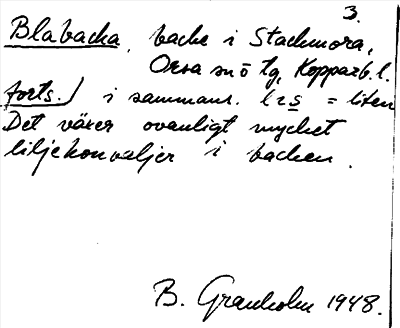 3.
Blabacka, backe i Stackmora,
Orsa sn ö tg, Kopparb. l.
forts.) i sammans. l = liten
Det växer ovanligt mycket
liljekonvaljer i backen.
B. Granholm 1948.